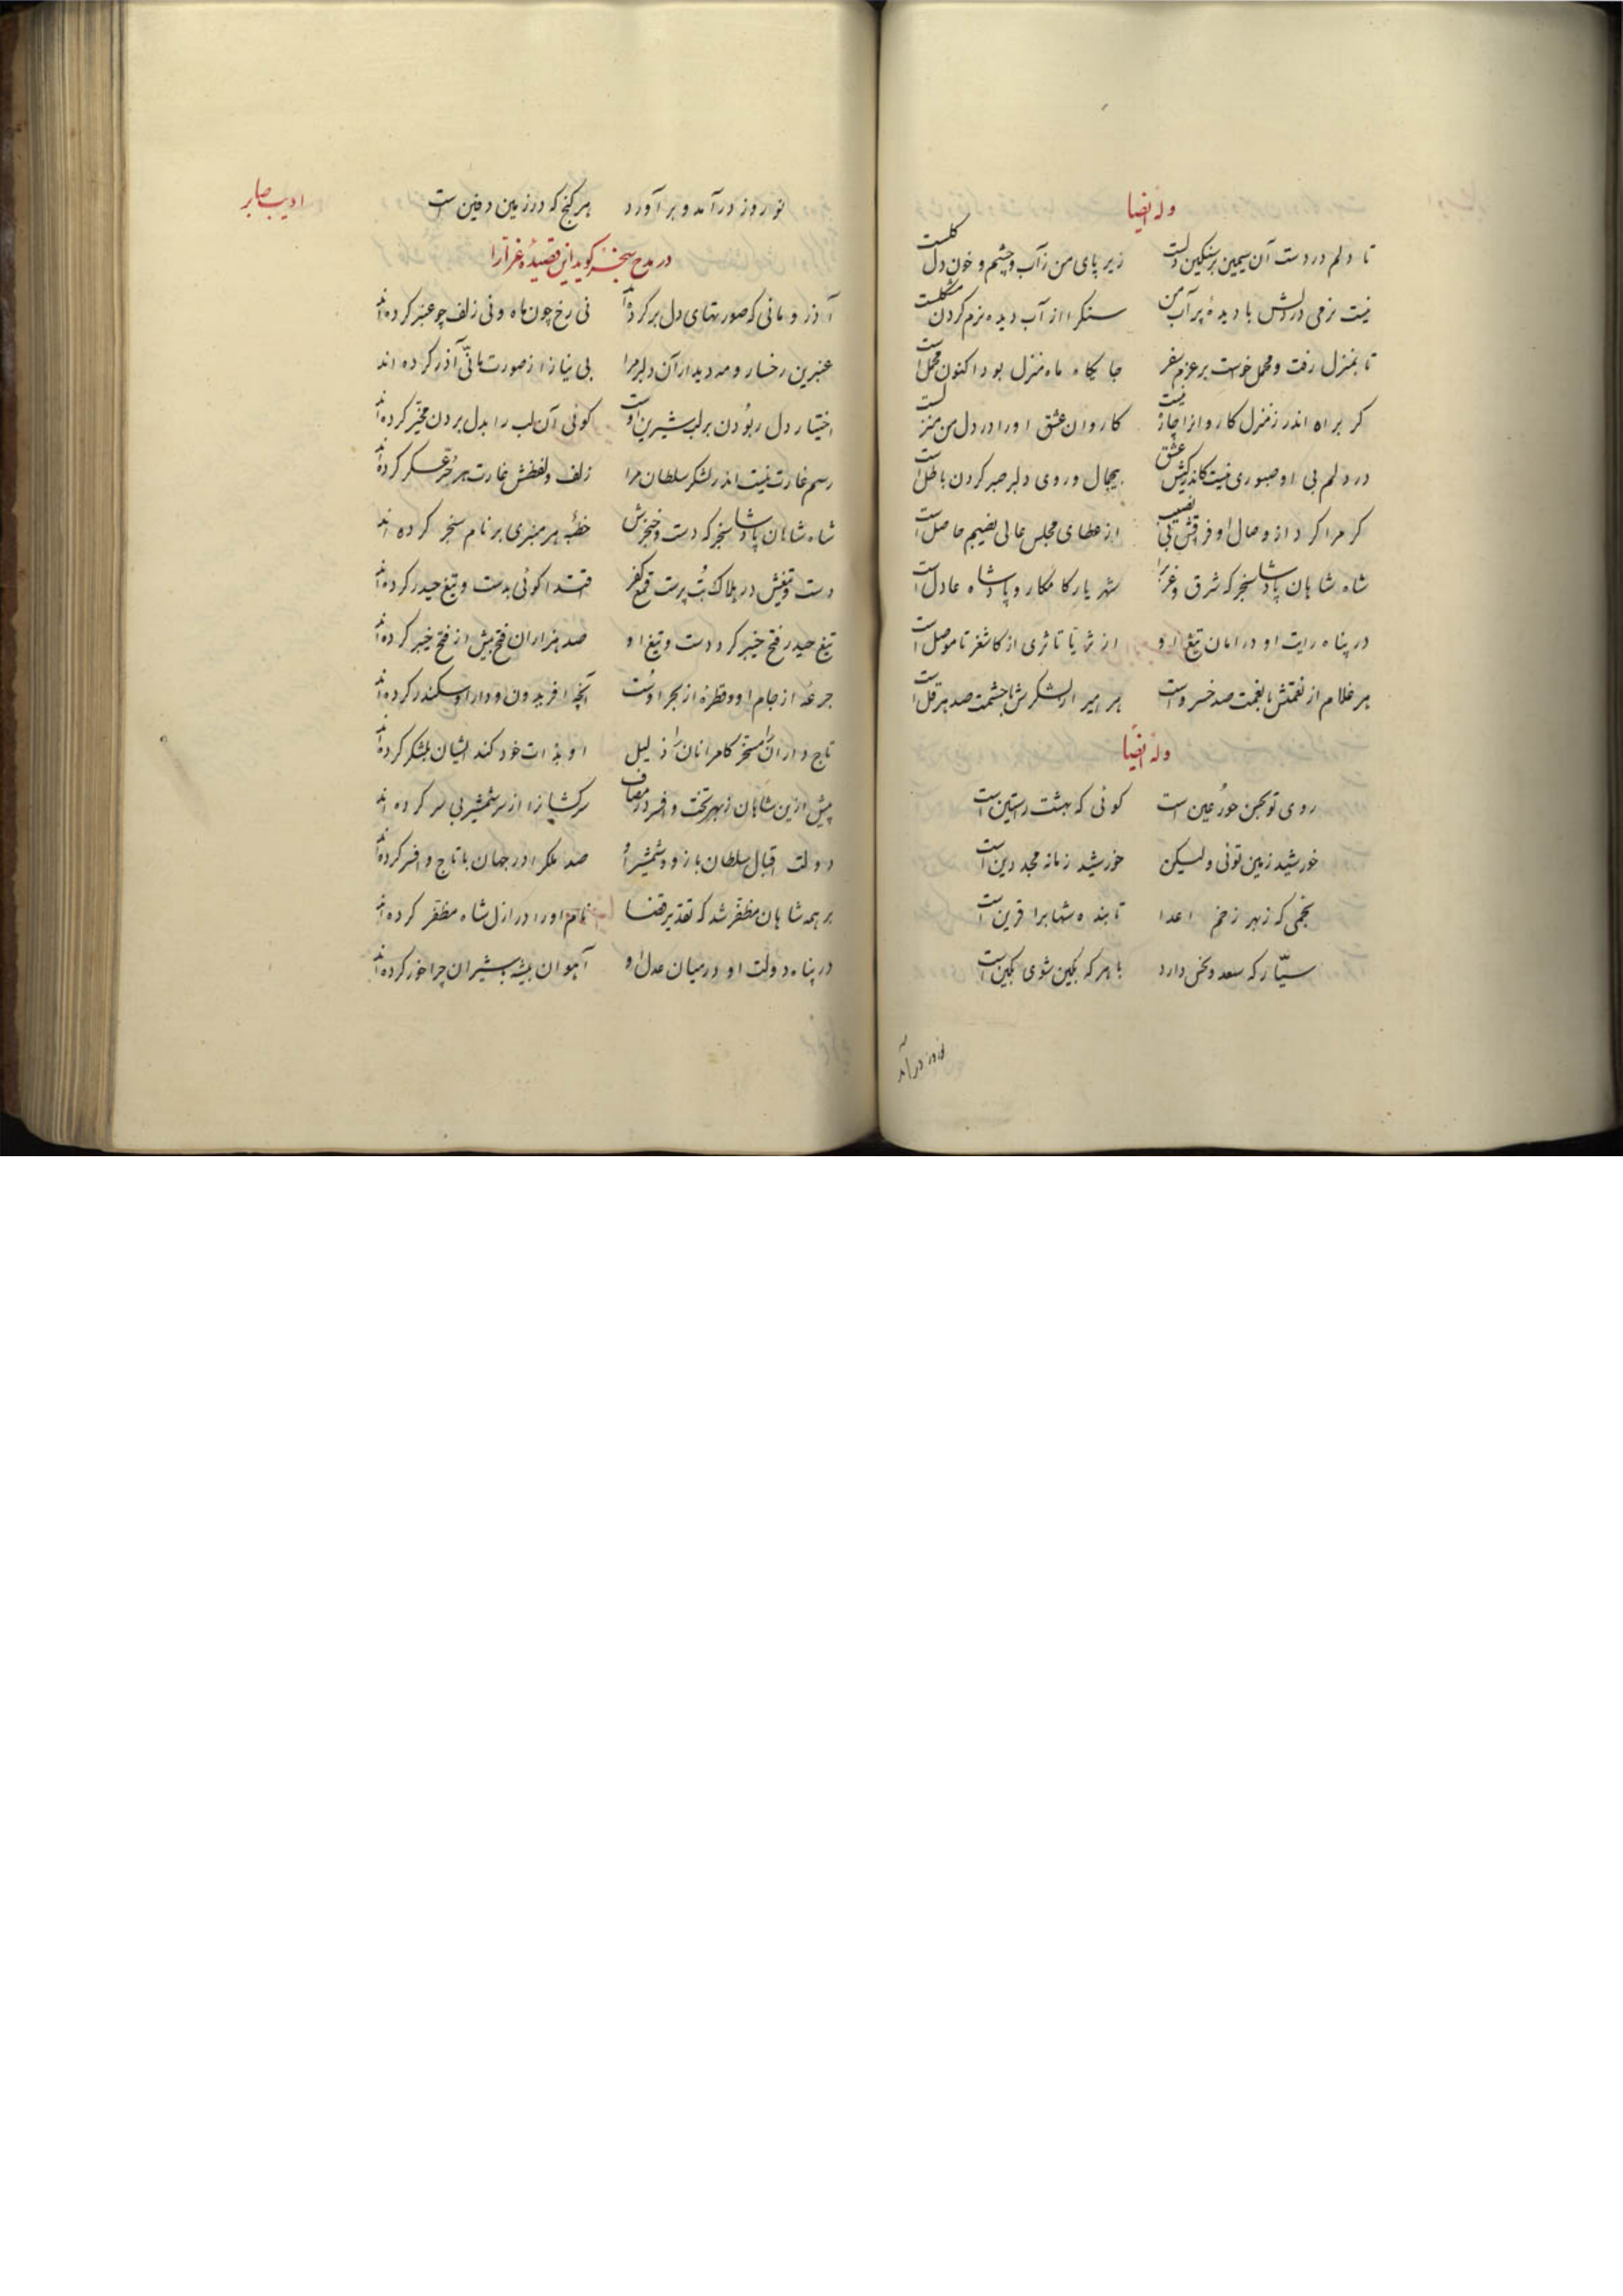 وله ایضا
تا دلم در دست آن سیمین بر سنگین دلست زیر پای من ز آب و چشم و خون دل گلست
نیست نرمی در دلش با دیدهٔ پر آب من سنگ را از آب دیده نرم کردن مشکلست
تا بمنزل رفت و محمل خوست بر عزم سفر جایگاه ماه منزل بود اکنون محمل است
گر براه اندر ز منزل کاروانرا چاره نیست کاروان عشق او را در دل من منزلست
در دلم بی او صبوری نیست کاندر کیش عشق بیجمال و روی دلبر صبر کردن باطل است
گر مرا کرد از وصال او فراقش بی نصیب از عطای مجلس عالی نصیبم حاصل است
شاه شاهان پادشا سنجر که شرق و غرب را شهریار کامکار و پادشاه عادل است
در پناه رایت او در امان تیغ او از ثریا تا ثری از کاشغر تا موصل است
هر غلام از نعمتش با نعمت صد خسروست هر امیر از لشکرش با حشمت صد هرقل است
وله ایضا
روی تو بحسن حور عین است گوئی که بهشت راستین است
خورشید زمین توئی ولیکن خورشید زمانه مجد دین است
نجمی که ز بهر زخم اعدا تابنده شهابرا قرین است
سیّاره که سعد و نحس دارد با هر که بکین شوی بکین است
نوروز در آمد
ادیب صابر
نوروز در آمد و بر آورد هر گنج که در زمین دفین ست
در مدح سنجر گوید این قصیدهٔ غرّا را
آذر و مانی که صورتهای دل بر کرده اند نی رخ چون ماه و نی زلف چو عنبر کرده اند
عنبرین رخسار و مه دیدار آن دلبر مرا بی نیاز از صورت مانیّ آذر کرده اند
اختیار دل ربودن بر لب شیرین اوست گوئی آن لب را بدل بردن مخیّر کرده اند
رسم غارت نیست اندر لشکر سلطان مرا زلف و لفظش غارت هر عسکر کرده اند
شاه شاهان پادشا سنجر که دست و خنجرش خطبهٔ هر منبری بر نام سنجر کرده اند
دست و تیغش در هلاک بت پرست و قمع کفر اقتدا گوئی بدست و تیغ حیدر کرده اند
تیغ حیدر فتح خیبر کرد و دست و تیغ او صد هزاران فتح بیش از فتح خیبر کرده اند
جرعهٔ از جام او و قطرهٔ از بحر اوست آنچه افریدون و دارا و سکندر کرده اند
تاج داران را مسخّر کامرانان را ذلیل او بذات خود کند ایشان بلشکر کرده اند
پیش ازین شاهان ز بهر تخت و افسر در مصاف سرکشانرا از سر شمشیر بی سر کرده اند
دولت اقبال سلطان بازو و شمشیر او صد ملک را در جهان با تاج و افسر کرده اند
بر همه شاهان مظفّر شد که تقدیر قضا نام او را در ازل شاه مظفّر کرده اند
در پناه دولت او در میان عدل او آهوان بیشه شیران چراخور کرده اند